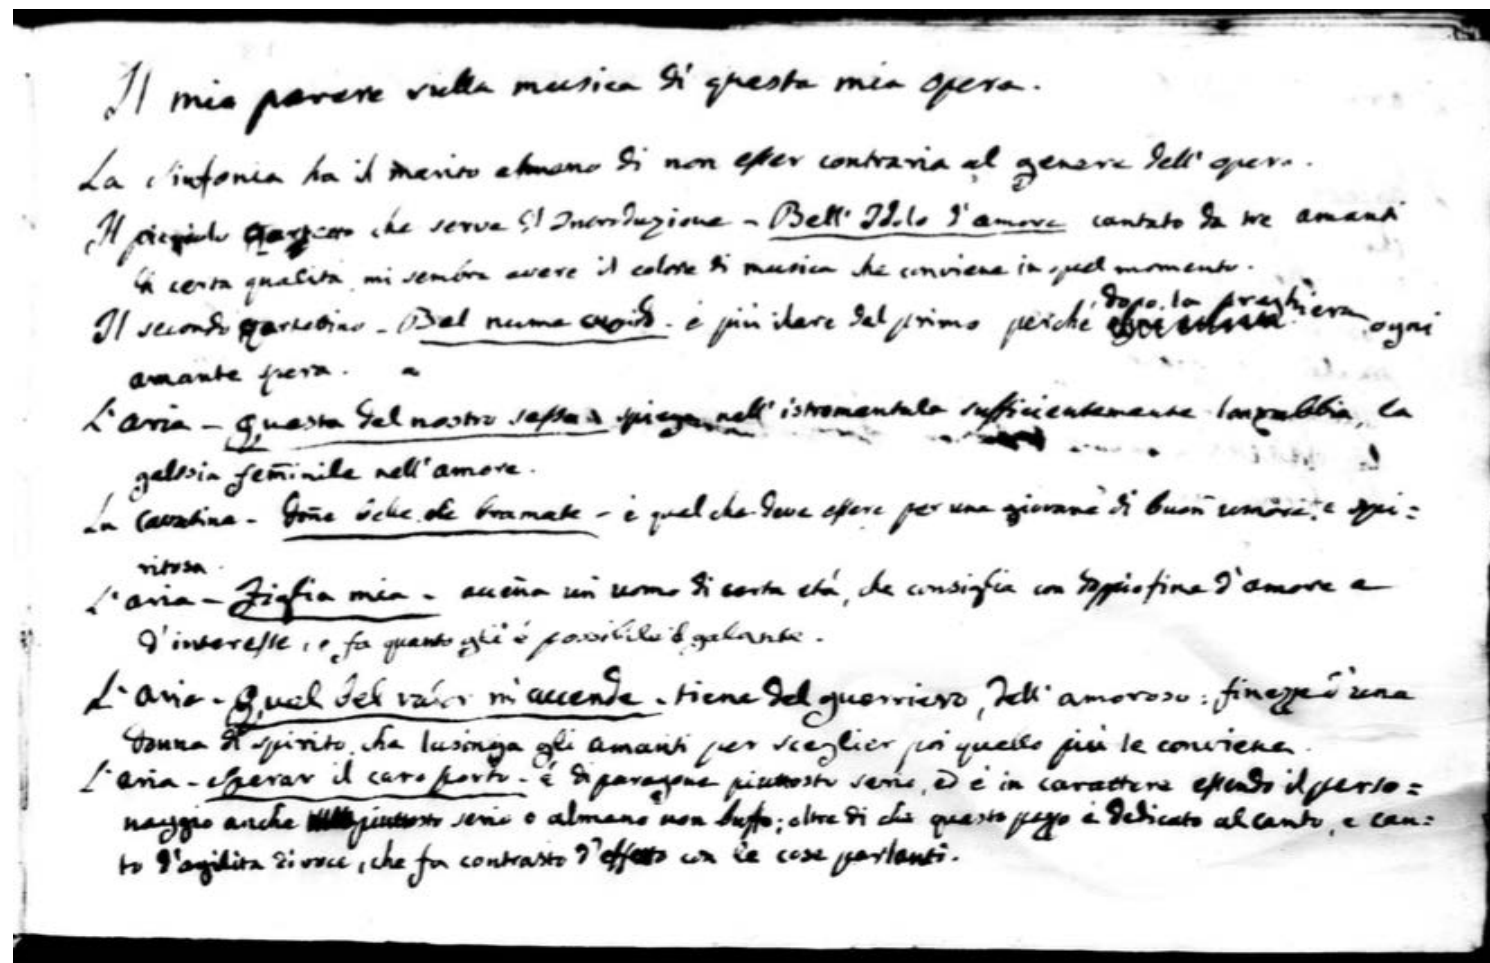 Il mio parere sulla musica di questa mia opera.
La Sinfonia ha il merito almeno di non esser contraria al genere dell' opera.
Il picciolo che serve d'Introduzione – Bell' Idolo d'amore cantato da tre amanti
di certa qualità, mi sembra avere il colore di musica che conviene in quel momento.
Il secondo – Bel nume – è più ilare del primo perché dopo la preghiera ogni
amante spera.
L'aria – Questa del nostro sesso – spiega nell' istromentale sufficientemente la rabbia, la
gelosia feminile nell'amore.
La Cavatina – Done belle che bramate – è quel che deve essere per una giovane di buon umore, e spi=
ritosa.
L'aria – Figlia mia – acceña un uomo di certa età, che consiglia con doppio fine d'amore e
d'interesse, e fa quanto gli è possibile il galante.
L'aria – Quel bel valor m'accende – tiene del guerriero, dell' amoroso: finezze d'una
donna di spirito, che lusinga gli amanti per sceglier poi quello più le conviene.
L'aria – Sperar il caro porto – è di paragone piuttosto serio, ed è in carattere essendo il perso=
naggio anche piuttosto serio o almeno non buffo; oltre di che questo pezzo è dedicato al canto, e can=
to d'agilità di voce, che fa contrasto d'effetto con le cose parlanti.